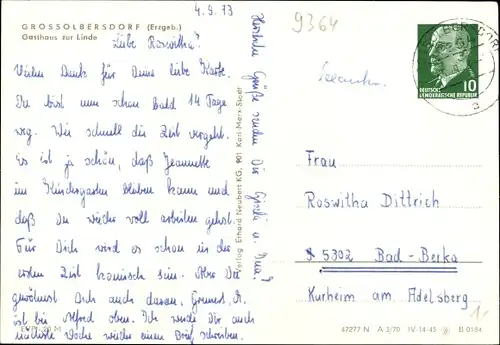 GROSSOLBERSDORF (Erzgeb.)
Gasthaus zur Linde
4.9.73
Liebe Roswitha!
Vielen Dank für Deine liebe Karte.
Du bist nun schon bald 14 Tage
weg. Wie schnell die Zeit vergeht.
Es ist ja schön, daß Jeannette
im Kindergarten bleiben kann und
daß Du wieder voll arbeiten gehst.
Für Dich wird es schon in der
ersten Zeit komisch sein. Aber Du
gewöhnst Dich auch daran.
ist bei Alfred oben. Ich werde Dir auch
nächste Woche wieder einen Brief schreiben.
Herzliche Grüße senden Dir Gisela u.
Verlag Erhard Neubert KG, 901 Karl-Marx-Stadt
9364
DEUTSCHE
DEMOKRATISCHE REPUBLIK
10
Frau
Roswitha Dittrich
5302 Bad-Berka
Kurheim am Adelsberg
47277 N A 3/70 IV-14-45 B 0184